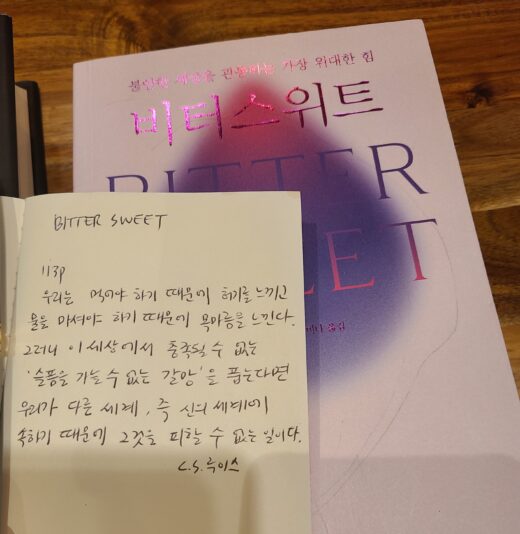 불안한 세상을 관통하는 가장 위대한 힘
비터스위트
BITTER
SWEET
옮김
BITTER SWEET
113P
우리는 먹어야 하기 때문에 허기를 느끼고
물을 마셔야 하기 때문에 목마름을 느낀다.
그러나 이 세상에서 충족될 수 없는
'슬픔을 가눌 수 없는 갈망'을 품는다면
우리가 다른 세계, 즉 신의 세계에
속하기 때문에 그것을 피할 수 없는 일이다.
C.S.루이스